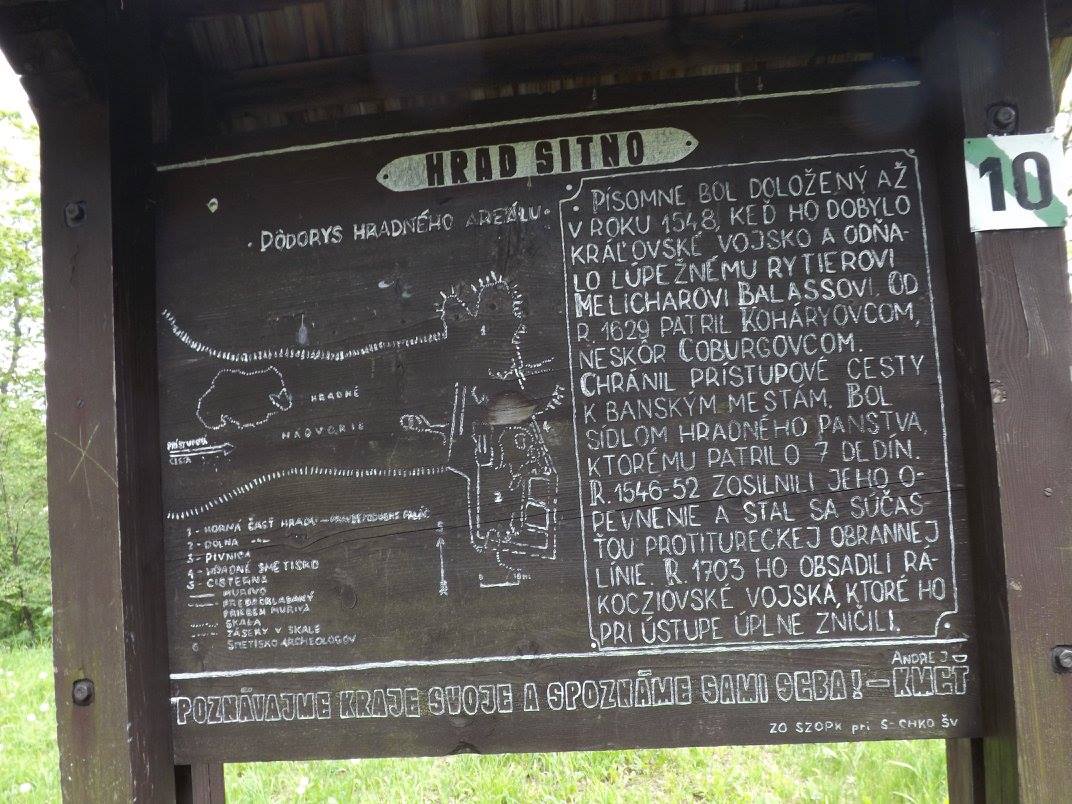 HRAD SITNO
10
• PÔDORYS HRADNÉHO AREÁLU •
PÍSOMNE BOL DOLOŽENÝ AŽ
V ROKU 1548, KEĎ HO DOBYLO
KRÁĽOVSKÉ VOJSKO A ODŇA-
LO LÚPEŽNÉMU RYTIEROVI
MELICHAROVI BALASSOVI. OD
R. 1629 PATRIL KOHÁRYOVCOM,
NESKÔR COBURGOVCOM.
CHRÁNIL PRÍSTUPOVÉ CESTY
K BANSKÝM MESTÁM, BOL
SÍDLOM HRADNÉHO PANSTVA,
KTORÉMU PATRILO 7 DEDÍN.
R. 1546-52 ZOSILNILI JEHO O-
PEVNENIE A STAL SA SÚČAS-
ŤOU PROTITURECKEJ OBRANNEJ
LÍNIE. R. 1703 HO OBSADILI RÁ-
KOCZIOVSKÉ VOJSKÁ, KTORÉ HO
PRI ÚSTUPE ÚPLNE ZNIČILI.
HRADNÉ
NÁDVORIE
PRÍSTUPOVÁ
CESTA
1 - HORNÁ ČASŤ HRADU - PRAVDEPODOBNE PALÁC
2 - DOLNÁ -"-
3 - PIVNICA
4 - HRADNÉ SMETISKO
5 - CISTERNA
MURIVO
PREDPOKLADANÝ
PRIEBEH MURIVA
SKALA
ZÁSEKY V SKALE
6 SMETISKO ARCHEOLÓGOV
S
1
2
4
10m
POZNÁVAJME KRAJE SVOJE A SPOZNÁME SAMI SEBA! - ANDREJ KMEŤ
ZO SZOPK pri S-CHKO ŠV